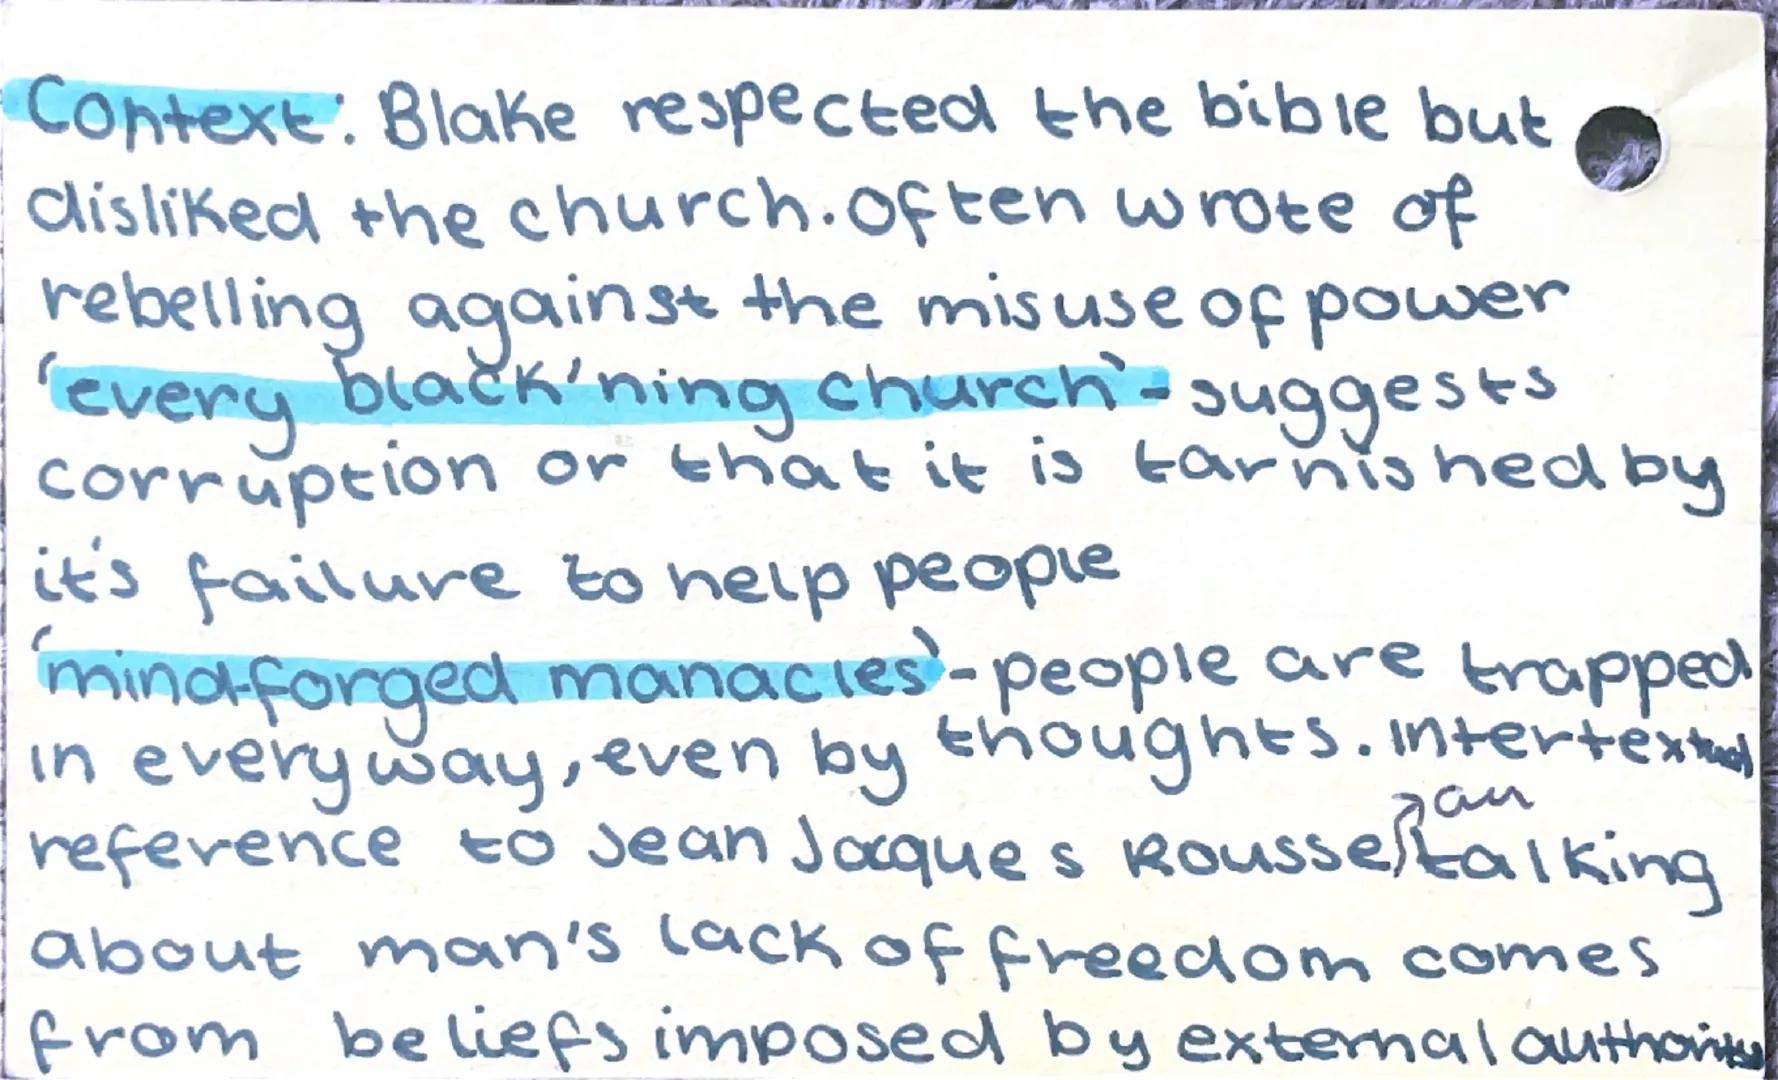 Context: Blake respected the bible but
disliked the church. Often wrote of
rebelling against the misuse of power
'every black'ning church' - suggests
corruption or that it is tarnished by
it's failure to help people
'mind-forged manacles' - people are trapped
in every way, even by thoughts. Intertextual
reference to Jean Jacques Rousseau talking
about man's lack of freedom comes
from beliefs imposed by external authorities